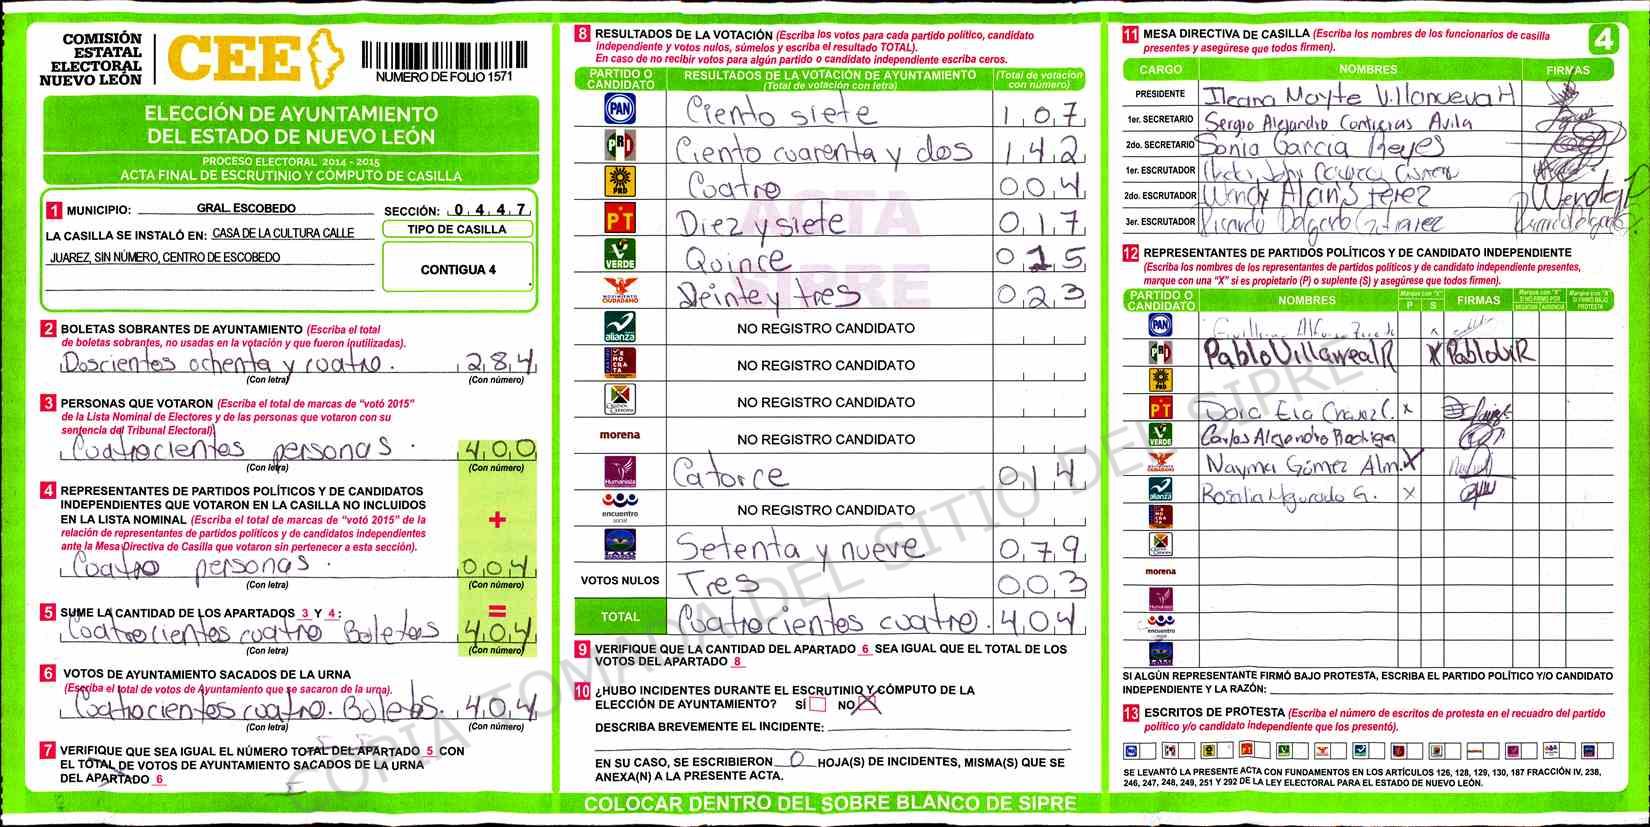 COMISIÓN
ESTATAL
ELECTORAL
NUEVO LEÓN
CEE
NUMERO DE FOLIO 1571
ELECCIÓN DE AYUNTAMIENTO
DEL ESTADO DE NUEVO LEÓN
PROCESO ELECTORAL 2014 - 2015
ACTA FINAL DE ESCRUTINIO Y CÓMPUTO DE CASILLA
1 MUNICIPIO: GRAL. ESCOBEDO SECCIÓN: 0 4 4 7
LA CASILLA SE INSTALÓ EN: CASA DE LA CULTURA CALLE
JUAREZ, SIN NÚMERO, CENTRO DE ESCOBEDO
TIPO DE CASILLA
CONTIGUA 4
2 BOLETAS SOBRANTES DE AYUNTAMIENTO (Escriba el total
de boletas sobrantes, no usadas en la votación y que fueron inutilizadas).
Doscientos ochenta y cuatro. 2 8 4
(Con letra) (Con número)
3 PERSONAS QUE VOTARON (Escriba el total de marcas de "votó 2015"
de la Lista Nominal de Electores y de las personas que votaron con su
sentencia del Tribunal Electoral).
Cuatrocientes personas. 4 0 0
(Con letra) (Con número)
4 REPRESENTANTES DE PARTIDOS POLÍTICOS Y DE CANDIDATOS
INDEPENDIENTES QUE VOTARON EN LA CASILLA NO INCLUIDOS
EN LA LISTA NOMINAL (Escriba el total de marcas de "votó 2015" de la
relación de representantes de partidos políticos y de candidatos independientes
ante la Mesa Directiva de Casilla que votaron sin pertenecer a esta sección).
+
Cuatro personas. 0 0 4
(Con letra) (Con número)
5 SUME LA CANTIDAD DE LOS APARTADOS 3 Y 4: =
Cuatrocientes cuatro Boletas 4 0 4
(Con letra) (Con número)
6 VOTOS DE AYUNTAMIENTO SACADOS DE LA URNA
(Escriba el total de votos de Ayuntamiento que se sacaron de la urna).
Cuatrocientes cuatro. Boletas. 4 0 4
(Con letra) (Con número)
7 VERIFIQUE QUE SEA IGUAL EL NÚMERO TOTAL DEL APARTADO 5 CON
EL TOTAL DE VOTOS DE AYUNTAMIENTO SACADOS DE LA URNA
DEL APARTADO 6
8 RESULTADOS DE LA VOTACIÓN (Escriba los votos para cada partido político, candidato
independiente y votos nulos, súmelos y escriba el resultado TOTAL).
En caso de no recibir votos para algún partido o candidato independiente escriba ceros.
PARTIDO O CANDIDATO
RESULTADOS DE LA VOTACIÓN DE AYUNTAMIENTO
(Total de votación con letra)
(Total de votación con número)
PAN Ciento siete 1 0 7
PRD Ciento cuarenta y dos 1 4 2
PRD Cuatro 0 0 4
PT Diez y siete 0 1 7
VERDE Quince 0 1 5
MOVIMIENTO CIUDADANO Veinte y tres 0 2 3
alianza NO REGISTRO CANDIDATO
DEMOCRATA NO REGISTRO CANDIDATO
NO REGISTRO CANDIDATO
morena NO REGISTRO CANDIDATO
Humanista Catorce 0 1 4
encuentro social NO REGISTRO CANDIDATO
Setenta y nueve 0 7 9
VOTOS NULOS Tres 0 0 3
TOTAL Cuatrocientes cuatro. 4 0 4
ACTA
SIPRE
9 VERIFIQUE QUE LA CANTIDAD DEL APARTADO 6 SEA IGUAL QUE EL TOTAL DE LOS
VOTOS DEL APARTADO 8
10 ¿HUBO INCIDENTES DURANTE EL ESCRUTINIO Y CÓMPUTO DE LA
ELECCIÓN DE AYUNTAMIENTO? SÍ NO X
DESCRIBA BREVEMENTE EL INCIDENTE:
EN SU CASO, SE ESCRIBIERON 0 HOJA(S) DE INCIDENTES, MISMA(S) QUE SE
ANEXA(N) A LA PRESENTE ACTA.
COLOCAR DENTRO DEL SOBRE BLANCO DE SIPRE
11 MESA DIRECTIVA DE CASILLA (Escriba los nombres de los funcionarios de casilla
presentes y asegúrese que todos firmen).
4
CARGO NOMBRES FIRMAS
PRESIDENTE Ileana Mayte Villanueva H
1er. SECRETARIO Sergio Alejandro Contreras Avila
2do. SECRETARIO Sonia Garcia Reyes
1er. ESCRUTADOR
2do. ESCRUTADOR Wendy Perez Wendy P
3er. ESCRUTADOR Ricardo Delgado
12 REPRESENTANTES DE PARTIDOS POLÍTICOS Y DE CANDIDATO INDEPENDIENTE
(Escriba los nombres de los representantes de partidos políticos y de candidato independiente presentes,
marque con una "X" si es propietario (P) o suplente (S) y asegúrese que todos firmen).
PARTIDO O CANDIDATO NOMBRES Marque con "X" P S FIRMAS Marque con "X" SI NO FIRMO POR NEGATIVA AUSENCIA Marque con "X" SI FIRMÓ BAJO PROTESTA
PAN
PRD Pablo Villarreal R X Pablo V R
PRD
PT Dora Ela Chavez C. x
VERDE Carlos Alejandro Rodriguez
Nayma Gómez Alm. X
alianza Rosalia G. X
morena
Humanista
encuentro social
SI ALGÚN REPRESENTANTE FIRMÓ BAJO PROTESTA, ESCRIBA EL PARTIDO POLÍTICO Y/O CANDIDATO
INDEPENDIENTE Y LA RAZÓN:
13 ESCRITOS DE PROTESTA (Escriba el número de escritos de protesta en el recuadro del partido
político y/o candidato independiente que los presentó).
SE LEVANTÓ LA PRESENTE ACTA CON FUNDAMENTOS EN LOS ARTÍCULOS 126, 128, 129, 130, 187 FRACCIÓN IV, 238,
246, 247, 248, 249, 251 Y 292 DE LA LEY ELECTORAL PARA EL ESTADO DE NUEVO LEÓN.
COPIA TOMADA DEL SITIO DEL SIPRE